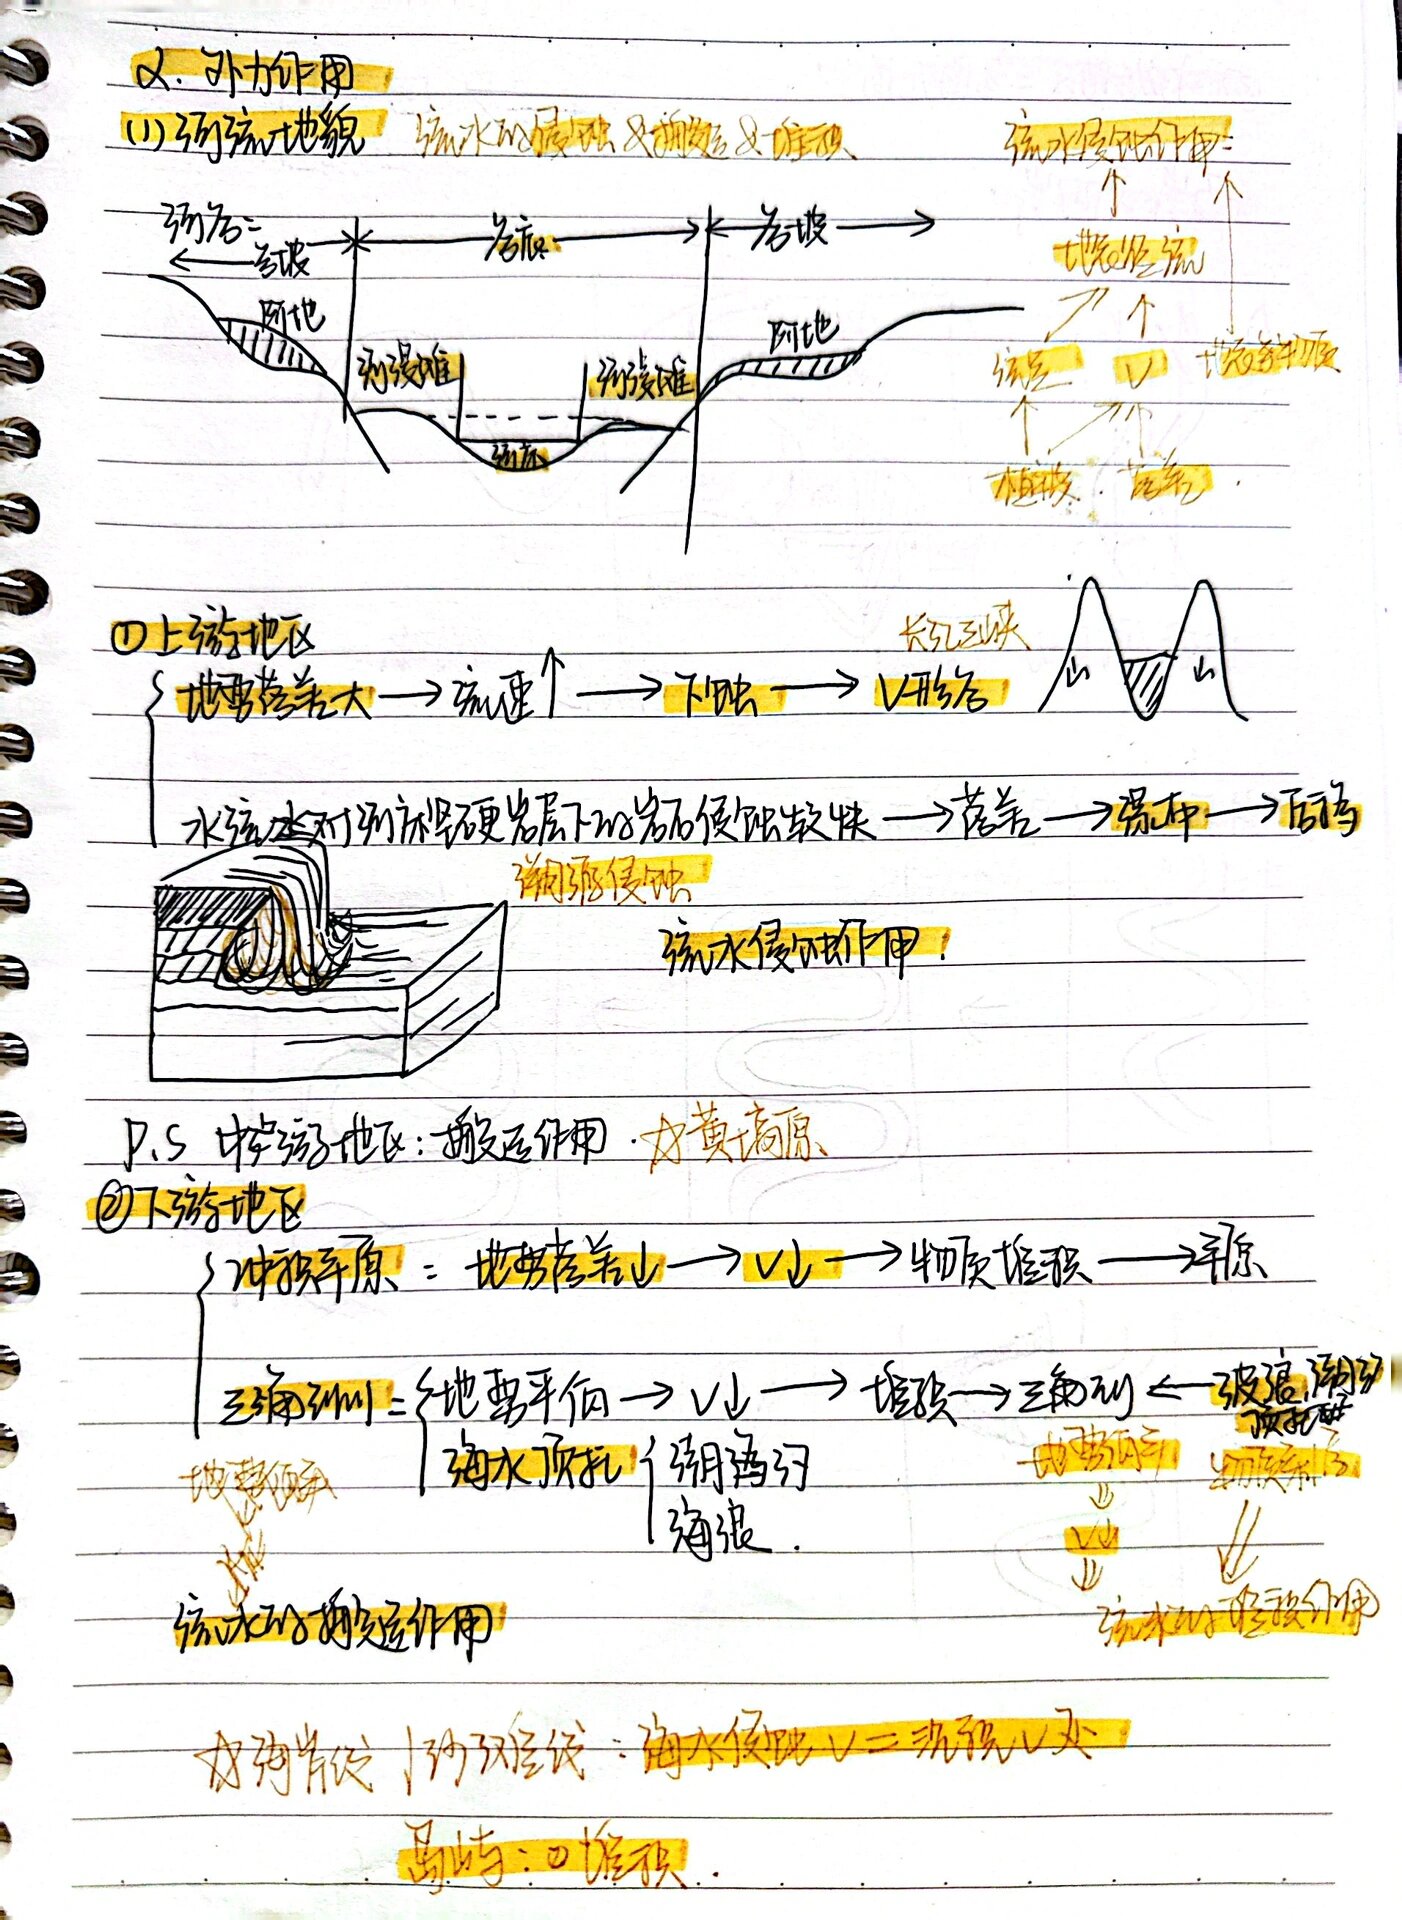 2. 外力作用
(1) 河流地貌 流水的侵蚀&搬运&堆积 流水侵蚀作用:
河谷:
谷坡 谷底 谷坡 地表径流
阶地 阶地
河漫滩 河漫滩 流量 V 地表物质
河床
植被 . 落差 .
①上游地区 长江三峡
地势落差大 → 流速↑ → 下蚀 → V形谷 山 山
水流对河床坚硬岩层下的岩石侵蚀较快 → 落差 → 瀑布 → 后移
溯源侵蚀
流水侵蚀作用!
P.S 中游地区:搬运作用 . ☆黄土高原
②下游地区
冲积平原: 地势落差↓ → V↓ → 物质堆积 → 平原
三角洲: 地势平伯 → V↓ → 堆积 → 三角洲 ← 波浪,潮汐
顶托
海水顶托 潮汐
海浪 .
地势低平 地势低平
V↓
流水的搬运作用 流水的堆积作用
☆海岸线 海水侵蚀V=沉积V处
岛屿:①堆积 .